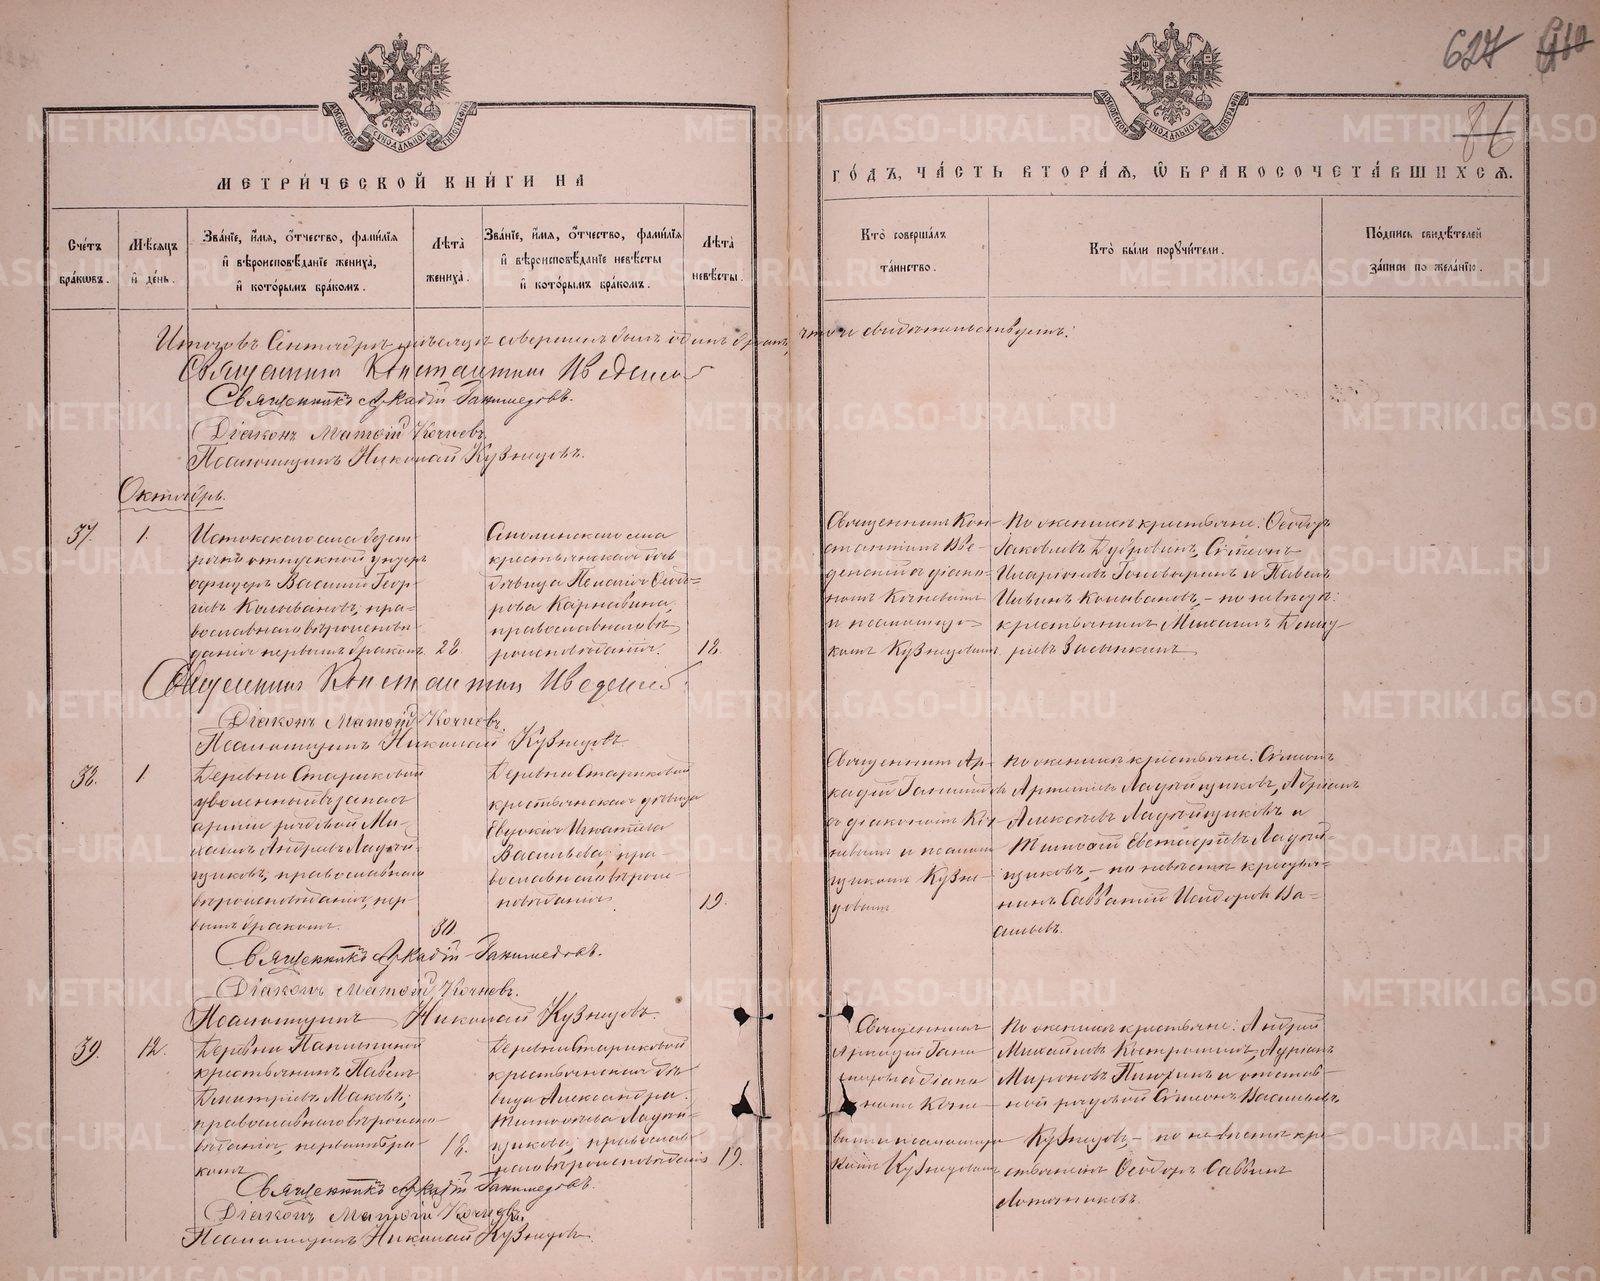 627
86
МЕТРИ́ЧЕСКОЙ КНИ́ГИ НА
ГО́ДЪ, ЧА́СТЬ ВТОРА́Я, Ѿ БРАКОСОЧЕТА́ВШИХСЯ.
Сче́тъ бра́кѡвъ.
Мѣ́сяцъ и҆ де́нь.
Зва́нїе, и҆́мя, ѻ҆́тчество, фами́лїя и҆ вѣроисповѣ́данїе жениха̀, и҆ кото́рымъ бра́комъ.
Лѣта̀ жениха̀.
Зва́нїе, и҆́мя, ѻ҆́тчество, фами́лїя и҆ вѣроисповѣ́данїе невѣ́сты и҆ кото́рымъ бра́комъ.
Лѣта̀ невѣ́сты.
Кто̀ соверша́лъ та́инство.
Кто̀ бы́ли порꙋчи́тели.
По́дпись свидѣ́телей за́писи по жела́нїю.
Итого въ Сентябрѣ мѣсяцѣ совершенъ былъ одинъ бракъ, что и свидѣтельствуемъ:
Священникъ Константинъ Введенскій
Священникъ Аркадій Ганимедовъ.
Діаконъ Матѳій Кочневъ.
Псаломщикъ Николай Кузнецовъ.
Октябрь.
37.
1.
Истокскаго села безсрочно отпускной унтеръ
офицеръ Василій Геор-
гіевъ Колывановъ, пра-
вославнаго вѣроисповѣ-
данія первымъ бракомъ
28.
крестьянская дѣ-
вица Пелагія Ѳеодо-
рова Карнавина,
православнаго вѣ-
роисповѣданія.
18.
Священникъ Кон-
стантинъ Вве-
денскій съ діако-
номъ Кочневымъ
и псаломщи-
комъ Кузнецовымъ
По женихѣ крестьяне: Ѳеодоръ
Іаковлевъ Дубровинъ, Сѵмеонъ
Иларіоновъ и Павелъ
Колывановъ, – по невѣстѣ:
крестьянинъ Михаилъ
Священникъ Константинъ Введенскій
Діаконъ Матѳій Кочневъ.
Псаломщикъ Николай Кузнецовъ.
38.
1.
Деревни Стариковой
уволенный въ запасъ
арміи рядовой Ми-
хаилъ Андреевъ Ладей-
щиковъ, православнаго
вѣроисповѣданія, пер-
вымъ бракомъ.
30
Деревни Стариковой
крестьянская дѣвица
Евдокія Игнатіева
Васильева, пра-
вославнаго вѣроис-
повѣданія.
19.
Священникъ Ар-
кадій Ганимедовъ
съ діакономъ Коч-
невымъ и псалом-
щикомъ Кузне-
цовымъ
По женихѣ крестьяне: Сѵмеонъ
Артеміевъ Ладейщиковъ, Адріанъ
Алексѣевъ Ладейщиковъ и
Тимоѳей Евстафіевъ Ладей-
щиковъ, – по невѣстѣ крестья-
нинъ Савватій Исидоровъ Ва-
сильевъ.
Священникъ Аркадій Ганимедовъ.
Діаконъ Матѳій Кочневъ.
Псаломщикъ Николай Кузнецовъ.
39.
12.
крестьянинъ Павелъ
Димитріевъ Маковъ,
православнаго вѣроиспо-
вѣданія, первымъ бра-
комъ
18.
Деревни Стариковой
крестьянская дѣ-
вица Александра
Тимоѳеева Ладей-
щикова, православ-
наго вѣроисповѣданія
19.
Священникъ
Аркадій Гани-
медовъ съ діако-
номъ Коч-
невымъ и псаломщи-
комъ Кузнецовымъ
По женихѣ крестьяне: Андрей
Михайловъ Костроминъ, Адріанъ
Мироновъ и отстав-
ной рядовой Сѵмеонъ Васильевъ
Кузнецовъ, – по невѣстѣ кре-
стьянинъ Ѳеодоръ Саввинъ
Священникъ Аркадій Ганимедовъ.
Діаконъ Матѳій Кочневъ.
Псаломщикъ Николай Кузнецовъ.
METRIKI.GASO-URAL.RU